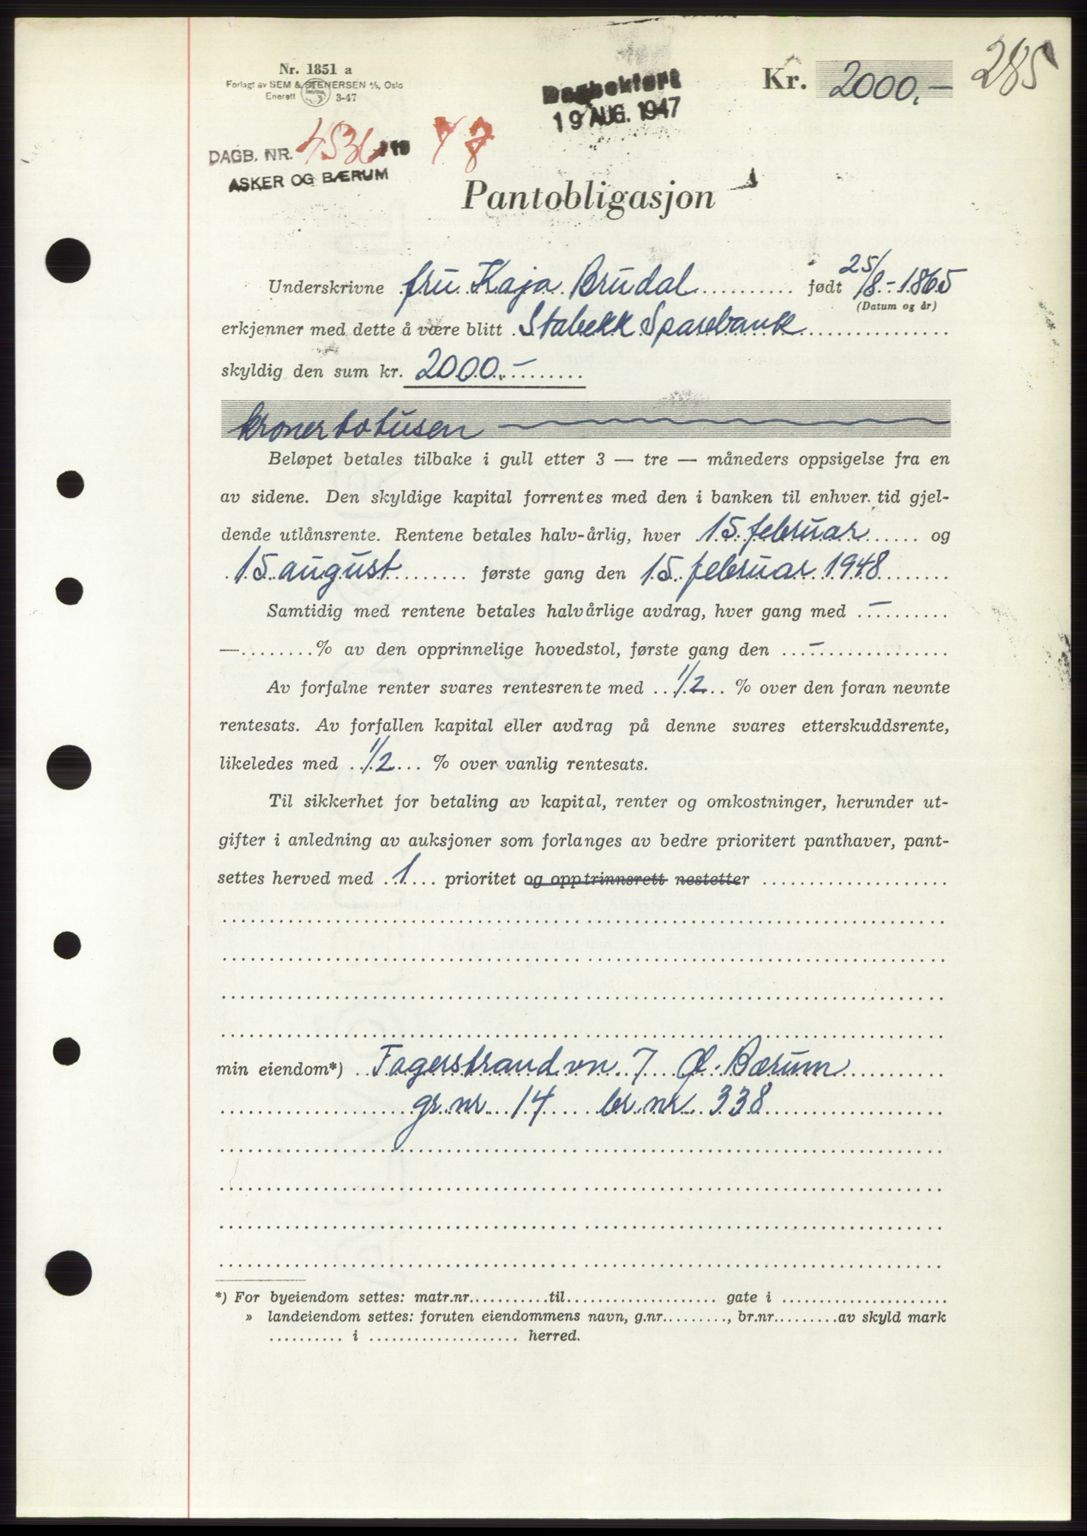 285
Nr. 1851 a
Forlagt av SEM & STENERSEN A/S, Oslo
Enerett 3-47
Dagbokført
19 AUG. 1947
Kr. 2000,—
DAGB. NR. 4536 /19 47
ASKER OG BÆRUM
Pantobligasjon
Underskrivne fru Kaja Brudal født 25/8-1865
(Datum og år)
erkjenner med dette å være blitt Stabekk Sparebank
skyldig den sum kr. 2000,—
kroner totusen
Beløpet betales tilbake i gull etter 3 — tre — måneders oppsigelse fra en
av sidene. Den skyldige kapital forrentes med den i banken til enhver tid gjel-
dende utlånsrente. Rentene betales halv-årlig, hver 15. februar og
15 august første gang den 15. februar 1948
Samtidig med rentene betales halvårlige avdrag, hver gang med —
— % av den opprinnelige hovedstol, første gang den —
Av forfalne renter svares rentesrente med 1/2 % over den foran nevnte
rentesats. Av forfallen kapital eller avdrag på denne svares etterskuddsrente,
likeledes med 1/2 % over vanlig rentesats.
Til sikkerhet for betaling av kapital, renter og omkostninger, herunder ut-
gifter i anledning av auksjoner som forlanges av bedre prioritert panthaver, pant-
settes herved med 1 prioritet og opptrinnsrett nestetter
min eiendom*) Fagerstrandvn. 7 Ø. Bærum
gr. nr. 14 br. nr. 338
*) For byeiendom settes: matr.nr. til gate i
» landeiendom settes: foruten eiendommens navn, g.nr. , br.nr. av skyld mark
i herred.